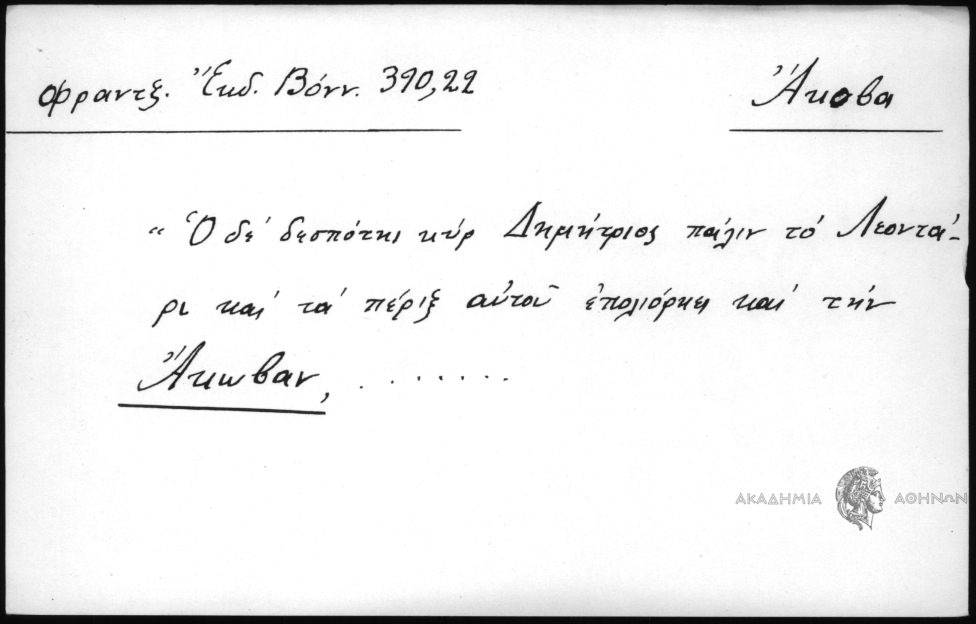 Φραντξ. Ἔκδ. Βόνν. 390,22
Ἄκοβα
“ Ὁ δέ δεσπότης κύρ Δημήτριος πάλιν τό Λεοντά-
ρι καί τά πέριξ αὐτοῦ ἐπολιόρκει καί τήν
Ἄκωβαν, . . . . . . . .
ΑΚΑΔΗΜΙΑ ΑΘΗΝΩΝ